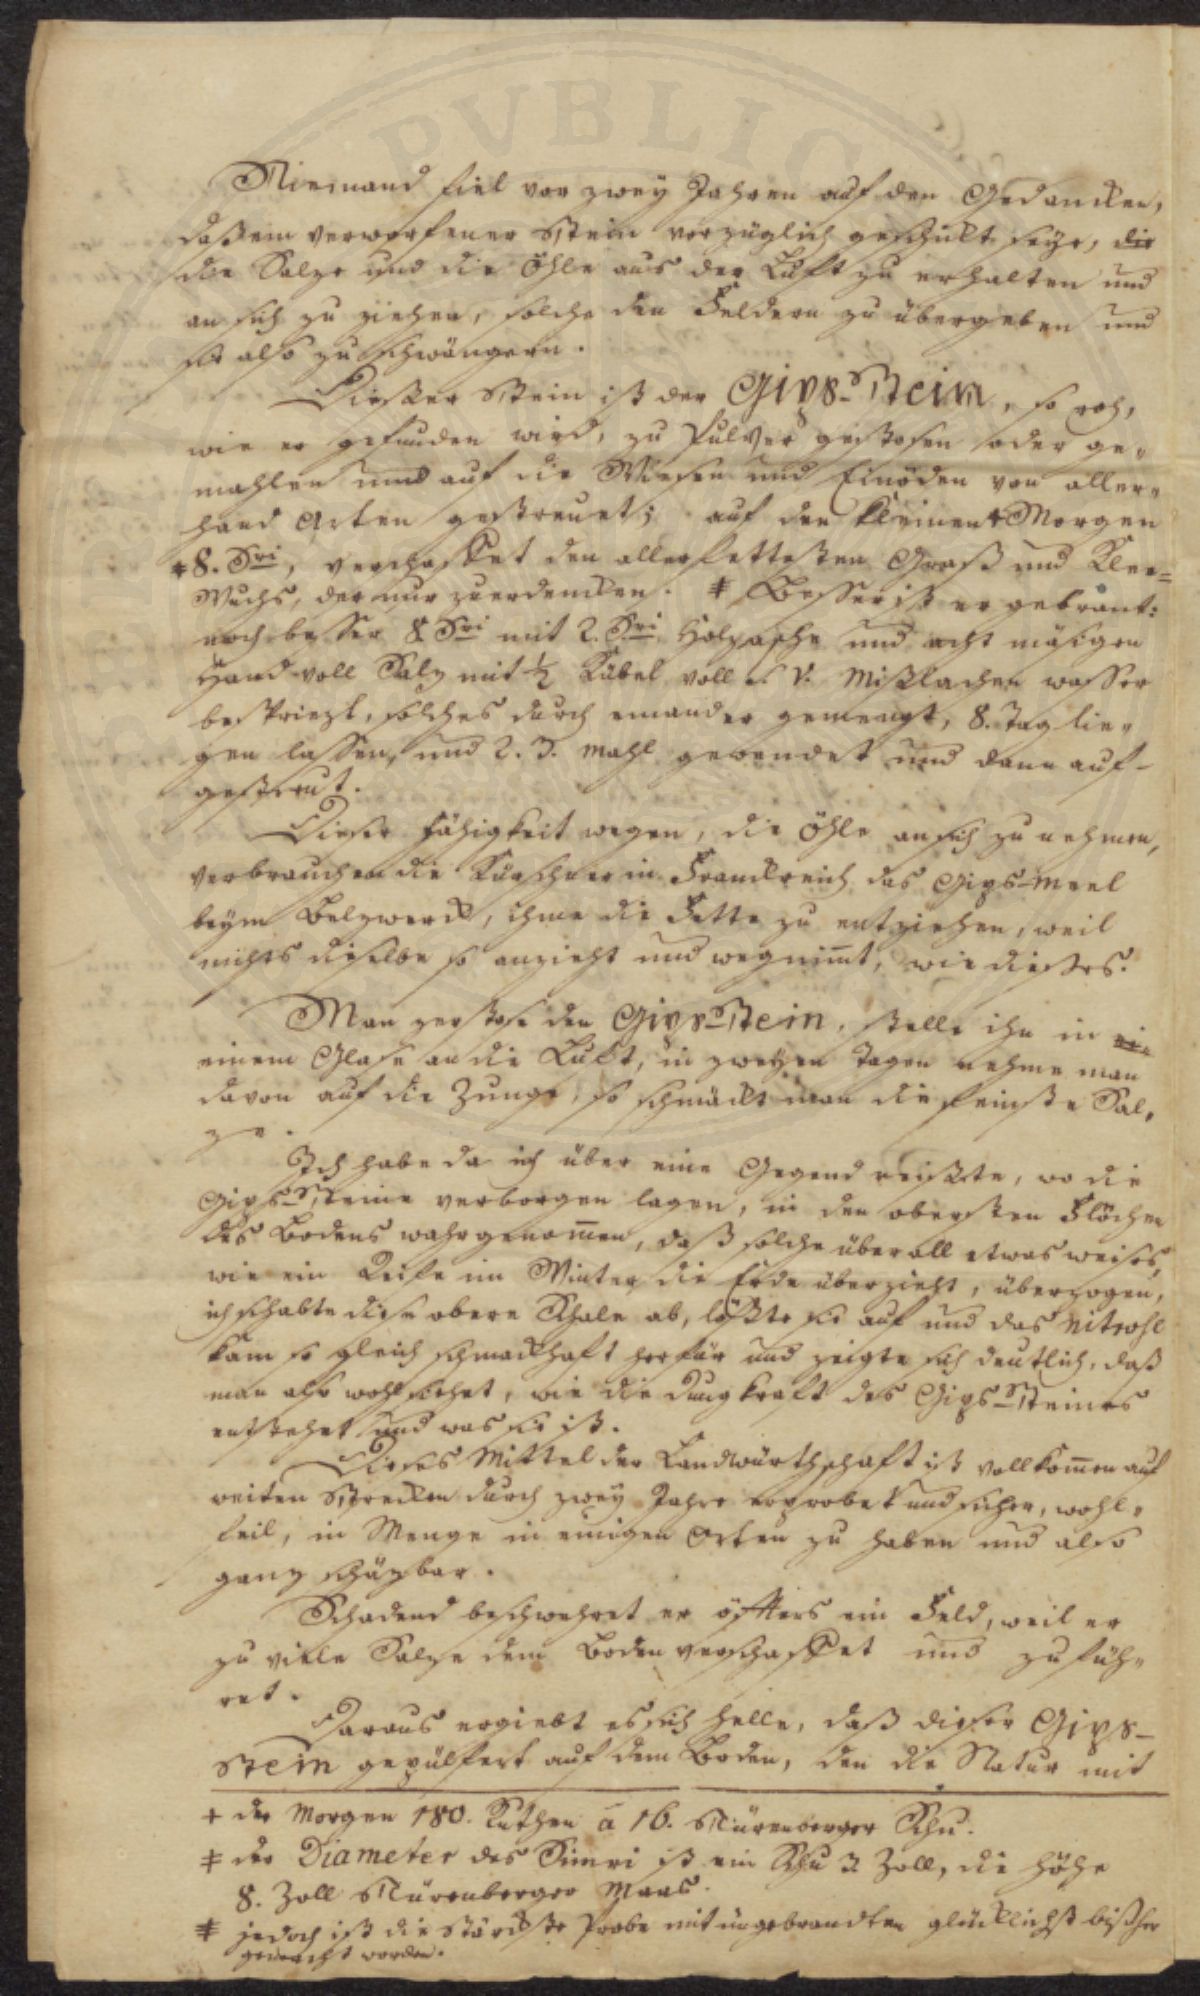 Niemand fiel vor zwey Jahren auf den Gedancken,
daß ein verworfener Stein vorzüglich geschikt seye, die
die Salze und die Öhle aus der Luft zu erhalten und
an sich zu ziehen, solche den Feldern zu übergeben und
sie also zu schwängern.
Dießer Stein ist der Gips-Stein, so roh,
wie er gefunden wird, zu Pulver gestosen oder ge„
mahlen und auf die Wiesen und Einöden von aller„
hand Arten gestreuet; auf den kleinen + Morgen
‡ 8. Sri, verschaffet den allerfettesten Graß und Klee=
Wuchs, der nur zuerdencken. ‡ Besser ist er gebrant:
noch besser 8 Sri mit 2. Sri Holzasche und acht mäsigen
Hand voll Salz mit ½ Kübel voll s. v. Mistlachen wasser
bespriezt, solches durch einander gemengt, 8. Tag lie„
gen lassen, und 2. 3. mahl gewendet und dann auf-
gestreut.
Dieser Fähigkeit wegen, die Öhle an sich zu nehmen,
verbrauchen die Kürschner in Franckreich das Gips-Meel
beym Belzwerck, ihme die Fette zu entziehen, weil
nichts dieselbe so anzieht und wegnim̅t, wie dießes.
Man zerstose den Gips-Stein, stelle ihn in ei„
einem Glase an die Luft, in zweyen Tagen nehme man
davon auf die Zunge, so schmäckt man die feinste Sal„
ze.
Ich habe da ich über eine Gegend reißte, wo die
Gips-Steine verborgen lagen, in den obersten Flächen
des Bodens wahrgenom̅en, daß solche überall etwas weises,
wie ein Reife im Winter die Erde überzieht, überzogen,
ich schabte diese obere Schale ab, lößte sie auf und das Nitrohl
kam so gleich schmackhaft herfür und zeigte sich deutlich, daß
man also wohl siehet, wie die Dungkraft des Gips-Steines
entstehet und was sie ist.
Dieses Mittel der Landwürthschaft ist vollkom̅en auf
weiten Strecken durch zwey Jahre erprobet und sicher, wohl„
feil, in Menge in einigen Orten zu haben und also
ganz schäzbar.
Schadend beschwehret er öffters ein Feld, weil er
zu viele Salze dem Boden verschaffet und zufüh„
ret.
Daraus ergiebt es sich helle, daß dieser Gips-
Stein gepülfert auf dem Boden, den die Natur mit
+ der Morgen 180. Ruthen à 16. Nürenberger Schu.
‡ der Diameter des Simri ist ein Schu 3 Zoll, die Höhe
8. Zoll Nürenberger Maas.
‡ jedoch ist die stärckste Probe mit ungebrandten glücklichst bißher
gemacht worden.